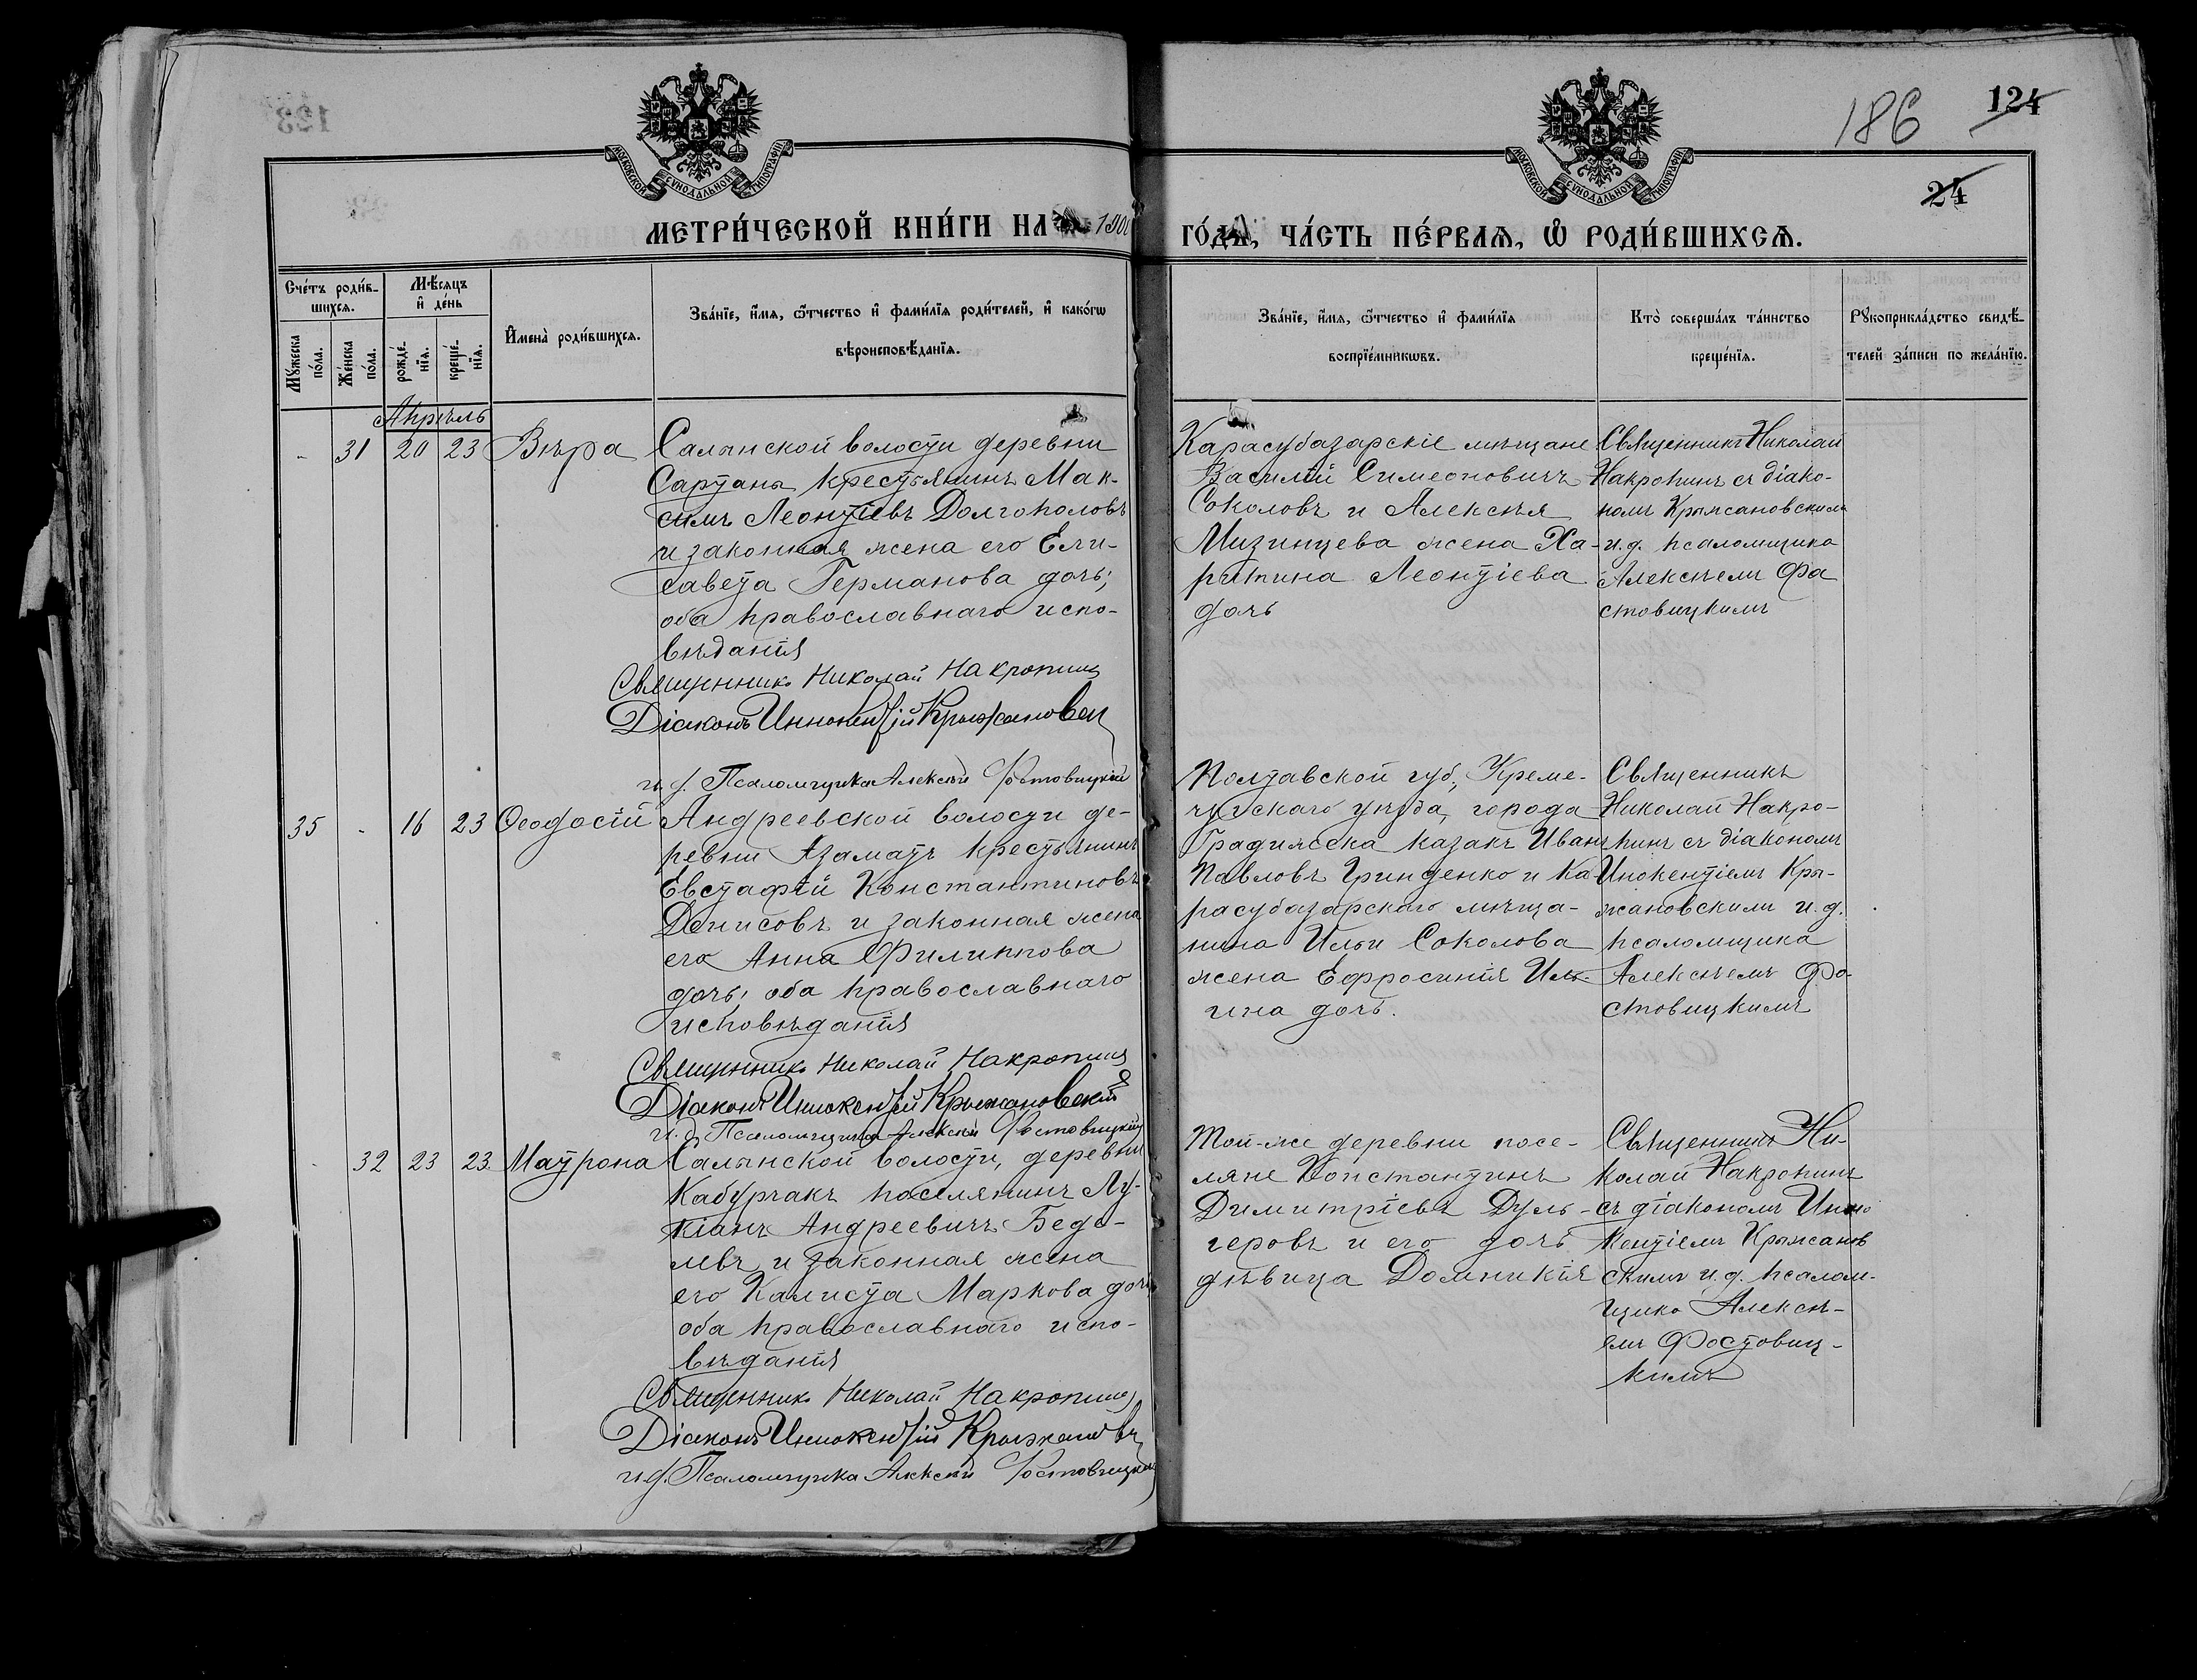 МОСКОВСКОЙ СѴНОДАЛЬНОЙ ТИПОГРАФІИ
МОСКОВСКОЙ СѴНОДАЛЬНОЙ ТИПОГРАФІИ
186
124
24
МЕТРИ́ЧЕСКОЙ КНИ́ГИ НА 1900
ГО́ДЪ, ЧА́СТЬ ПЕ́РВАѦ, Ѡ҆ РОДИ́ВШИХСѦ.
Сче́тъ роди́в-
шихсѧ.
Мꙋ́жеска
по́ла.
Же́нска
по́ла.
Мѣ́сѧцъ
и҆ де́нь
рожде́-
нїѧ.
креще́-
нїѧ.
И҆мена̀ роди́вшихсѧ.
Зва́нїе, и҆́мѧ, ѻ҆́тчество и҆ фами́лїѧ роди́телей, и҆ како́гѡ
вѣроисповѣ́данїѧ.
Зва́нїе, и҆́мѧ, ѻ҆́тчество и҆ фами́лїѧ
воспрїе́мникѡвъ.
Кто̀ соверша́лъ та́инство
креще́нїѧ.
Рꙋкоприкла́дство свидѣ́-
телей за́писи по жела́нїю.
Апрѣль
- 31 20 23 Вѣра
Салынской волости деревни
Сартана крестьянинъ Мак-
симъ Леонтіевъ Долгополовъ
и законная жена его Ели-
савета Германова дочь;
оба православнаго испо-
вѣданія
Священникъ Николай Накропинъ
Діаконъ Иннокентій Крыжановск
и. д. Псаломщика Алексѣй Фостовицкій
Карасубазарскіе мѣщане
Василій Симеоновичъ
Соколовъ и Алексѣя
Мизинцева жена Ха-
ритина Леонтіева
дочь
Священникъ Николай
Накропинъ съ діако-
номъ Крыжановскимъ
и. д. псаломщика
Алексѣемъ Фа
стовицкимъ
35 - 16 23 Ѳеодосій
Андреевской волости де-
ревни Азаматъ крестьянинъ
Евстафій Константиновъ
Денисовъ и законная жена
его Анна Филиппова
дочь; оба православнаго
исповѣданія
Священникъ Николай Накропинъ
Діаконъ Иннокентій Крыжановскій
и. д. Псаломщика Алексѣй Фостовицкій
Полтавской губ., Креме-
чугскаго уѣзда, города
Градижска казакъ Иванъ
Павловъ Гринденко и Ка-
расубазарскаго мѣща-
нина Ильи Соколова
жена Ефросинія Иль-
ина дочь.
Священникъ
Николай Накро-
пинъ съ діакономъ
Инокентіемъ Кры-
жановскимъ и. д.
псаломщика
Алексѣемъ Фо-
стовицкимъ
- 32 23 23 Матрона
Салынской волости, деревни
Кабурчакъ поселянинъ Лу-
кіанъ Андреевичъ Беде-
левъ и законная жена
его Калиста Маркова дочь
оба православнаго испо-
вѣданія
Священникъ Николай Накропинъ
Діаконъ Иннокентій Крыжановск
и. д. Псаломщика Алексѣй Фостовицкій
Той-же деревни посе-
ляне Константинъ
Димитріевъ Дуль-
геровъ и его дочь
дѣвица Домникія
Священникъ Ни-
колай Накропинъ
съ діакономъ Инно
кентіемъ Крыжанов
скимъ и. д. псалом-
щика Алексѣ-
емъ Фостовиц-
кимъ